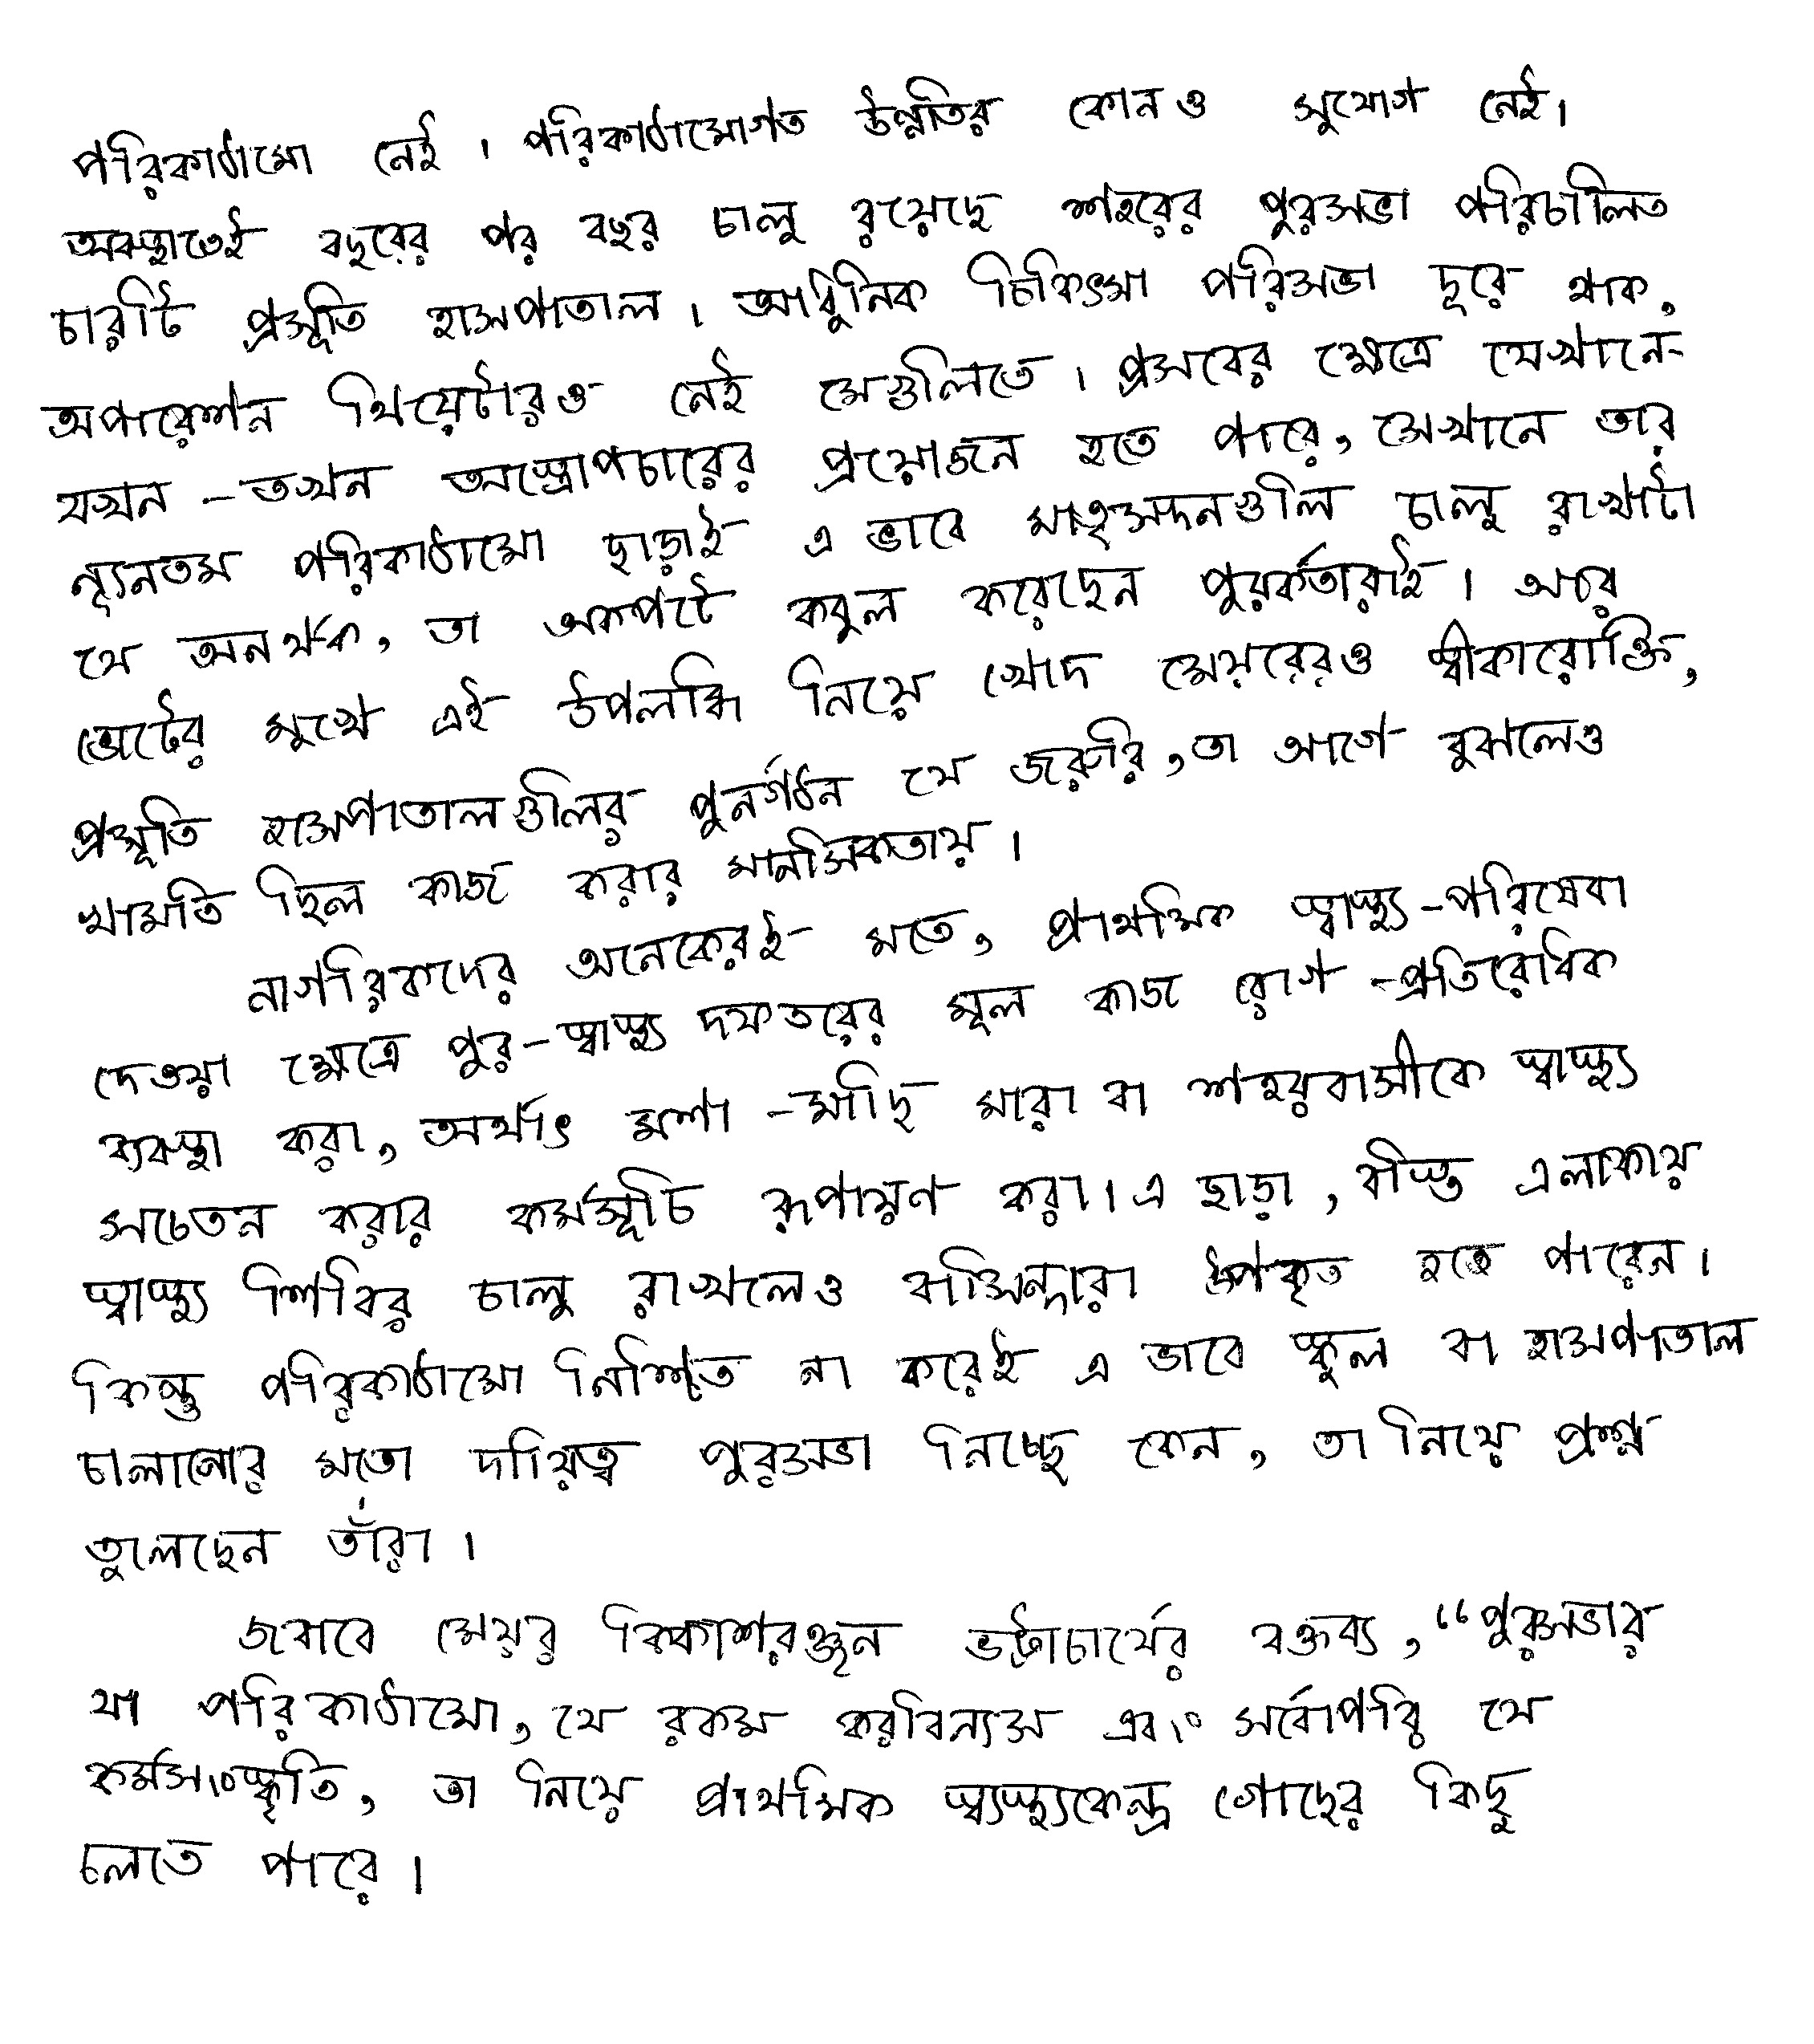 পরিকাঠামো নেই । পরিকাঠামোগত উন্নতির কোনও সুযোগ নেই।
অবস্থাতেই বছরের পর বছর চালু রয়েছে শহরের পুরসভা পরিচালিত
চারটি প্রসূতি হাসপাতাল । আধুনিক চিকিৎসা পরিসভা দূরে থাক,
অপারেশন থিয়েটারও নেই সেগুলিতে । প্রসবের ক্ষেত্রে সেখানে-
যখন - তখন অস্ত্রোপচারের প্রয়োজন হতে পারে, সেখানে তার
ন্যূনতম পরিকাঠামো ছাড়াই এ ভাবে মাতৃসদনগুলি চালু রাখাটা
যে অনর্থক, তা অকপটে কবুল করেছেন পুরকর্তারাই । আর
ভোটের মুখে এই উপলব্ধি নিয়ে খোদ মেয়রেরও স্বীকারোক্তি,
প্রসূতি হাসপাতালগুলির পুনর্গঠন যে জরুরি, তা আগে বুঝলেও
খামতি ছিল কাজ করার মানসিকতায় ।
নাগরিকদের অনেকেরই মতে, প্রাথমিক স্বাস্থ্য-পরিষেবা
দেওয়া ক্ষেত্রে পুর-স্বাস্থ্য দফতরের মূল কাজ রোগ -প্রতিরোধিক
ব্যবস্থা করা, অর্থাৎ মশা -মাছি মারা বা শহরবাসীকে স্বাস্থ্য
সচেতন করার কর্মসূচি রূপায়ণ করা। এ ছাড়া, বস্তি এলাকায়
স্বাস্থ্য শিবির চালু রাখলেও বাসিন্দারা উপকৃত হতে পারেন ।
কিন্তু পরিকাঠামো নিশ্চিত না করেই এ ভাবে স্কুল বা হাসপাতাল
চালানোর মতো দায়িত্ব পুরসভা নিচ্ছে কেন, তা নিয়ে প্রশ্ন
তুলেছেন তাঁরা ।
জবাবে মেয়র বিকাশরঞ্জন ভট্টাচার্যের বক্তব্য, “পুরসভার
যা পরিকাঠামো, যে রকম করবিন্যস এবং সর্বোপরি যে
কর্মসংস্কৃতি, তা নিয়ে প্রাথমিক স্বাস্থ্যকেন্দ্র গোছের কিছু
চলতে পারে ।